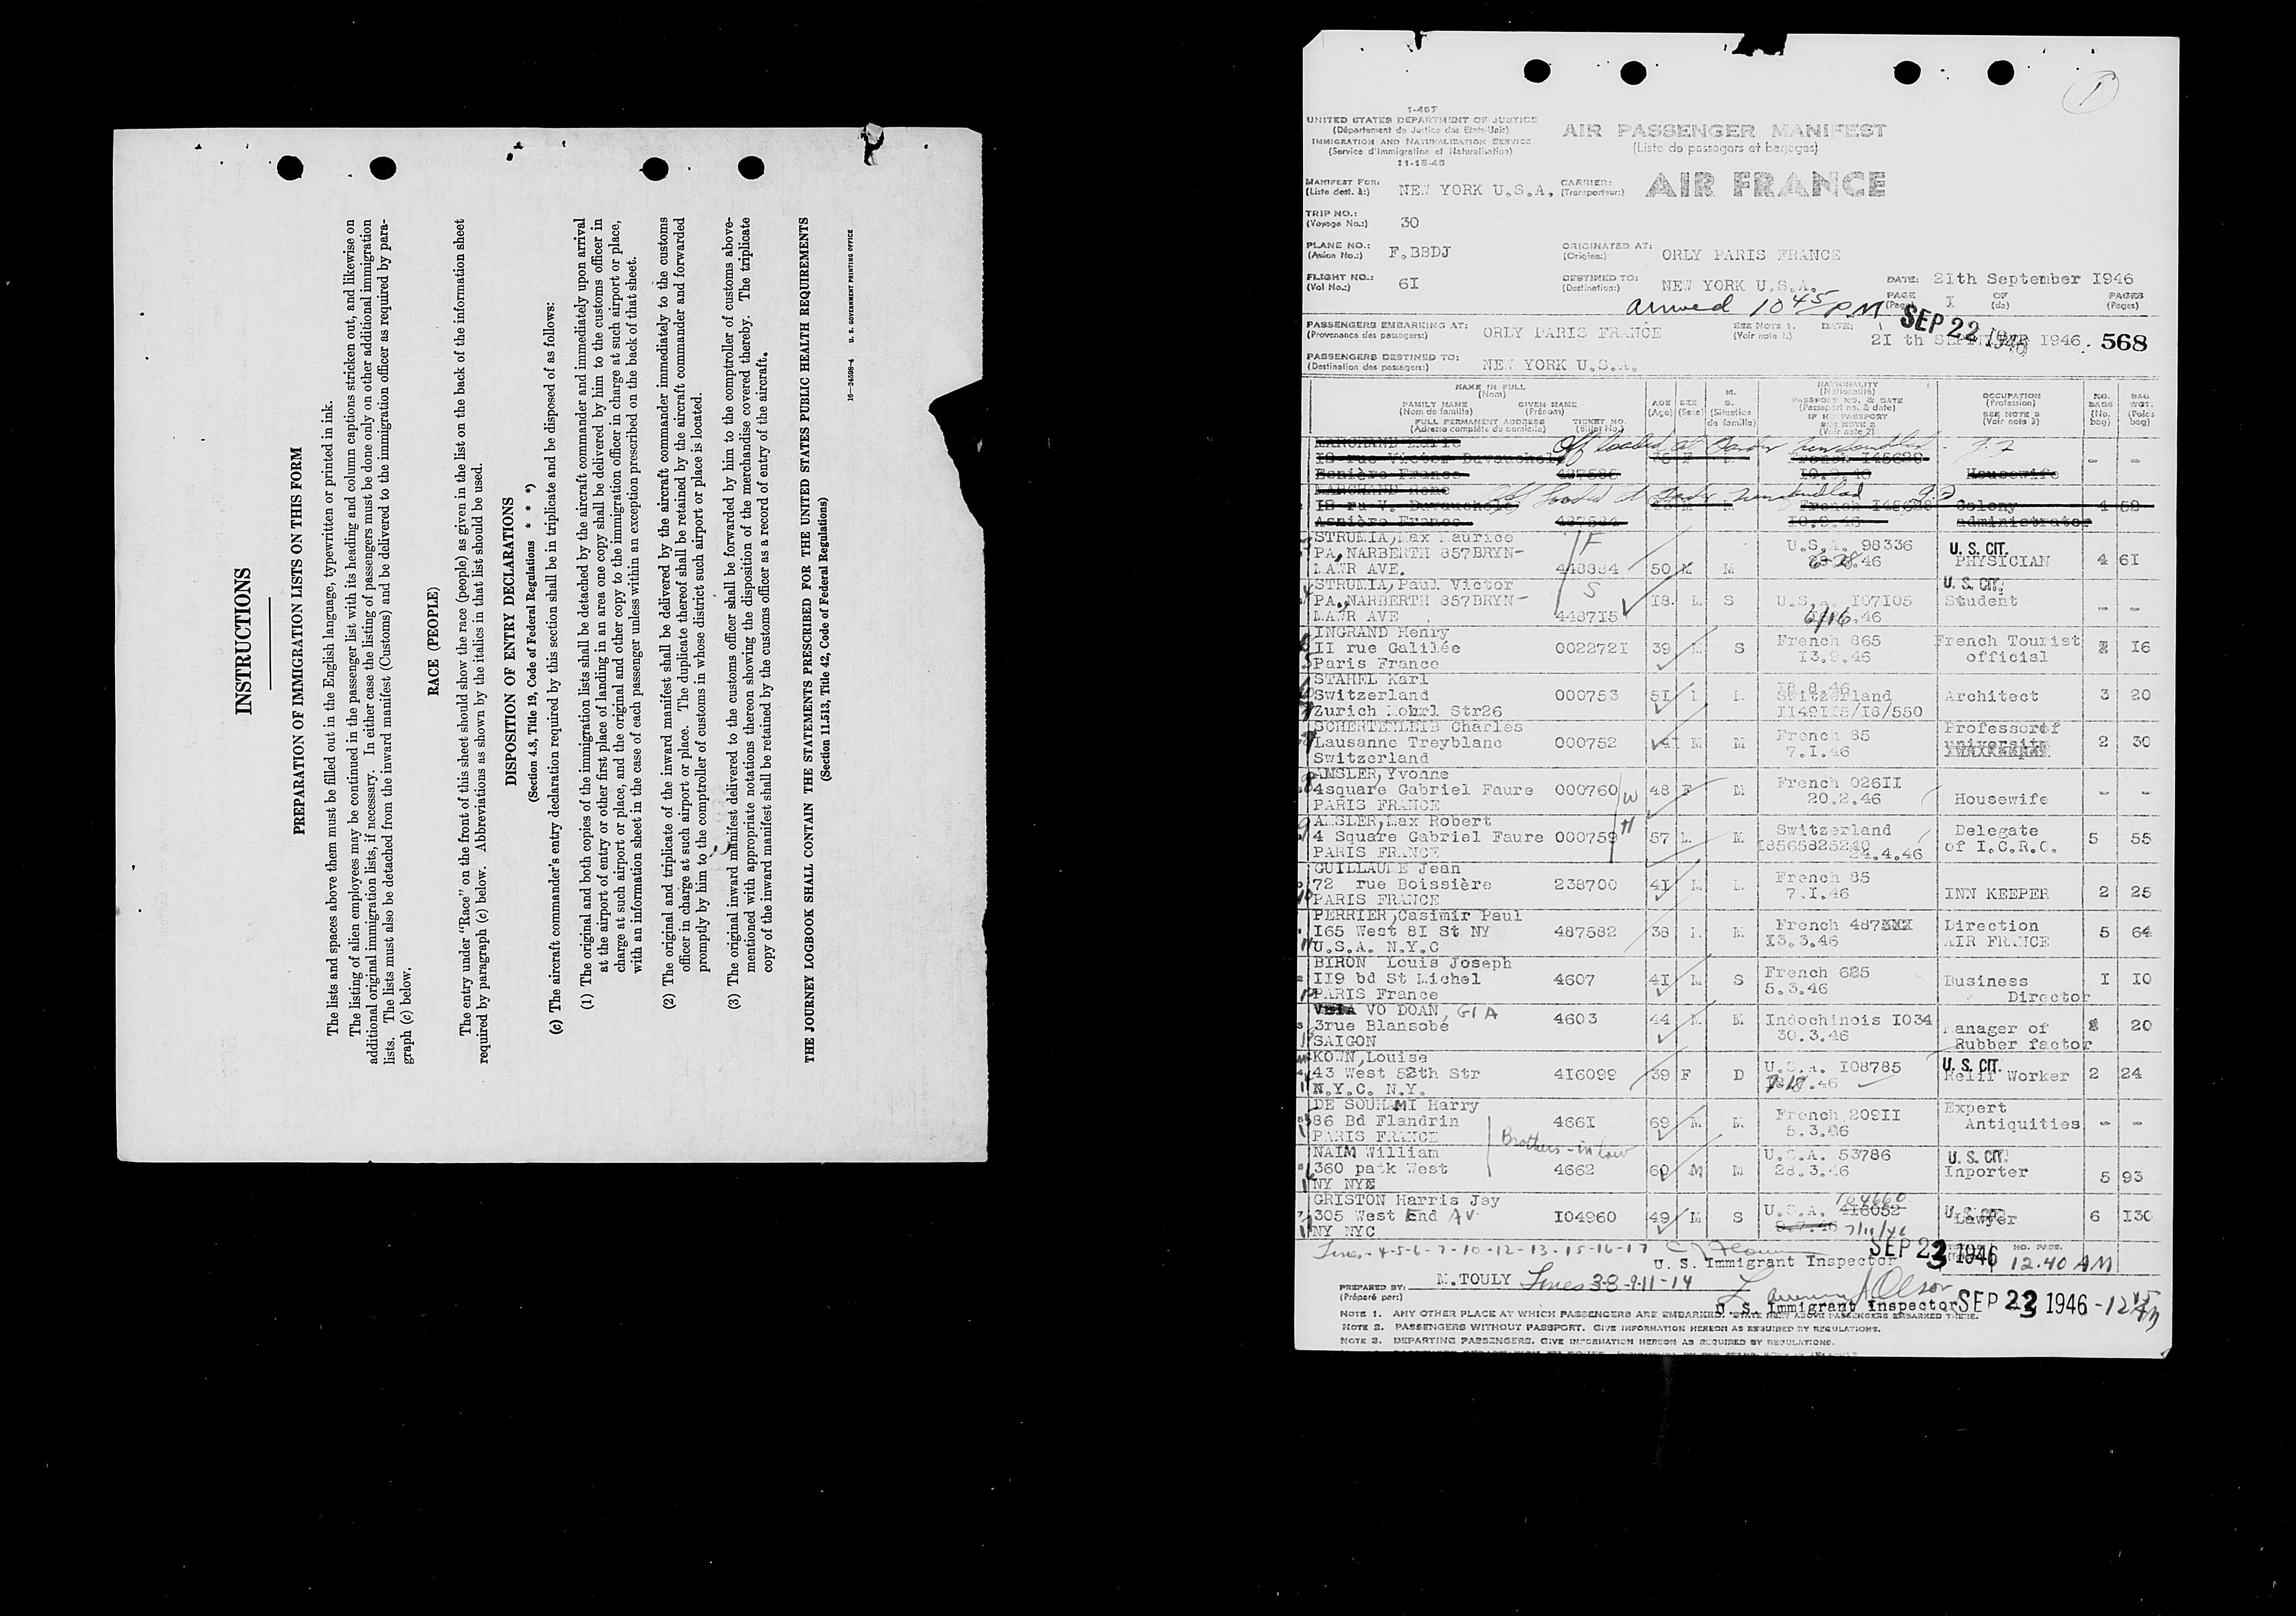 INSTRUCTIONS
PREPARATION OF IMMIGRATION LISTS ON THIS FORM
The lists and spaces above them must be filled out in the English language, typewritten or printed in ink.
The listing of alien employees may be continued in the passenger list with its heading and column captions stricken out, and likewise on
additional original immigration lists, if necessary. In either case the listing of passengers must be done only on other additional immigration
lists. The lists must also be detached from the inward manifest (Customs) and be delivered to the immigration officer as required by para-
graph (c) below.
RACE (PEOPLE)
The entry under "Race" on the front of this sheet should show the race (people) as given in the list on the back of the information sheet
required by paragraph (c) below. Abbreviations as shown by the italics in that list should be used.
DISPOSITION OF ENTRY DECLARATIONS
(Section 4.8, Title 19, Code of Federal Regulations * * *)
(c) The aircraft commander's entry declaration required by this section shall be in triplicate and be disposed of as follows:
(1) The original and both copies of the immigration lists shall be detached by the aircraft commander and immediately upon arrival
at the airport of entry or other first place of landing in an area one copy shall be delivered by him to the customs officer in
charge at such airport or place, and the original and other copy to the immigration officer in charge at such airport or place,
with an information sheet in the case of each passenger unless within an exception prescribed on the back of that sheet.
(2) The original and triplicate of the inward manifest shall be delivered by the aircraft commander immediately to the customs
officer in charge at such airport or place. The duplicate thereof shall be retained by the aircraft commander and forwarded
promptly by him to the comptroller of customs in whose district such airport or place is located.
(3) The original inward manifest delivered to the customs officer shall be forwarded by him to the comptroller of customs above-
mentioned with appropriate notations thereon showing the disposition of the merchandise covered thereby. The triplicate
copy of the inward manifest shall be retained by the customs officer as a record of entry of the aircraft.
THE JOURNEY LOGBOOK SHALL CONTAIN THE STATEMENTS PRESCRIBED FOR THE UNITED STATES PUBLIC HEALTH REQUIREMENTS
(Section 11.513, Title 42, Code of Federal Regulations)
16—24598-4 U. S. GOVERNMENT PRINTING OFFICE
1
I-467
UNITED STATES DEPARTMENT OF JUSTICE
(Département de Justice des Etats-Unis)
IMMIGRATION AND NATURALIZATION SERVICE
(Service d'Immigration et Naturalisation)
11-15-45
AIR PASSENGER MANIFEST
(Liste de passagers et bagages)
MANIFEST FOR: (Liste dest. à:) NEW YORK U.S.A. CARRIER: (Transporteur:) AIR FRANCE
TRIP NO.: (Voyage No.:) 30
PLANE NO.: (Avion No.:) F.BBDJ ORIGINATED AT: (Origine:) ORLY PARIS FRANCE
FLIGHT NO.: (Vol No.:) 6I DESTINED TO: (Destination:) NEW YORK U.S.A. DATE: 2Ith September I946
arrived 10 45 PM PAGE (Page) I OF (de) PAGES (Pages)
SEP 22 1946
PASSENGERS EMBARKING AT: (Provenance des passagers:) ORLY PARIS FRANCE SEE NOTE 1. (Voir note 1.) DATE: 2I th SEPTEMBER I946. 568
PASSENGERS DESTINED TO: (Destination des passagers:) NEW YORK U.S.A.
NAME IN FULL (Nom)
FAMILY NAME (Nom de famille) GIVEN NAME (Prénom)
FULL PERMANENT ADDRESS (Adresse complète du domicile) TICKET NO. (Billet No.)
AGE (Age) SEX (Sexe) M. S. (Situation de famille)
NATIONALITY (Nationalité) PASSPORT NO. & DATE (Passport no. & date) IF NO PASSPORT SEE NOTE 2 (Voir note 2)
OCCUPATION (Profession) SEE NOTE 3 (Voir note 3)
NO. BAGS (No. bag) BAG WGT. (Poids bag)
Off loaded at Gander Newfoundland
French I45628
Esnière France 487585 I0.9.46 Housewife
MARCHAND Rene Off loaded at Gander Newfoundland
I8 ru V. Duvauchele French Colony 4 58
Asnière France 487584 I0.9.46 administrator
STRUMIA, Max Maurice F U.S.A. 98336 U. S. CIT.
PA, NARBERTH 857BRYN- .46 PHYSICIAN 4 6I
MAWR AVE. 448884 50 M M
STRUMIA, Paul Victor S U. S. CIT.
PA., NARBERTH 857BRYN- I8 M S U.S.A. I07I05 Student - -
MAWR AVE 4487I5 6/16.46
INGRAND Henry French 865 French Tourist
II rue Galilée 002272I 39 M S I3.9.46 official I6
Paris France
STAHEL Karl
Switzerland 000753 5I M M Switzerland Architect 3 20
Zurich Str26 II49II5/I8/550
SCHERTENLEIB Charles French 85 Professor of
Lausanne Treyblanc 000752 4I M M 7.I.46 université 2 30
Switzerland
AMSLER, Yvonne French 026II
4square Gabriel Faure 000760 W 48 F M 20.2.46 Housewife - -
PARIS FRANCE
AMSLER, Max Robert H Switzerland Delegate
4 Square Gabriel Faure 000759 57 M M I8565825240 of I.C.R.C. 5 55
PARIS FRANCE 24.4.46
GUILLAUME Jean French 85
72 rue Boissière 238700 4I M M 7.I.46 INN KEEPER 2 25
PARIS FRANCE
PERRIER, Casimir Paul French 487 Direction
I65 West 8I St NY 487582 38 M M I3.3.46 AIR FRANCE 5 64
U.S.A. N.Y.C
BIRON Louis Joseph French 685
II9 bd St Michel 4607 4I M S 5.3.46 Business I I0
PARIS France Director
VO DOAN, GIA
3rue Blansobé 4603 44 M M Indochinois I034 Manager of 20
SAIGON 30.3.46 Rubber factor
KOWN, Louise U.S.A. I08785 U. S. CIT.
43 West 52th Str 4I6099 39 F D 7-18.46 Relif Worker 2 24
N.Y.C. N.Y.
DE SOUHAMI Harry French 209II Expert
86 Bd Flandrin 466I 69 M M 5.3.46 Antiquities - -
PARIS FRANCE
Brothers-in-law
NAIM William U.S.A. 53786 U. S. CIT.
360 park West 4662 60 M M 28.3.46 Inporter 5 93
NY NYE
GRISTON Harris Jay 104660
305 West End Av I04960 49 M S U.S.A. 4I6052 Lawyer 6 I30
NY NYC 7/11/46
Lines - 4-5-6-7-10-12-13-15-16-17 SEP 23 1946 NO. PASS.
U. S. Immigrant Inspector 12.40 AM
PREPARED BY: (Préparé par:) M.TOULY Lines 3-8-9-11-14
U. S. Immigrant Inspector SEP 23 1946 - 12 15 AM
NOTE 1. ANY OTHER PLACE AT WHICH PASSENGERS ARE EMBARKED. STATE ABOVE PASSENGERS EMBARKED THERE.
NOTE 2. PASSENGERS WITHOUT PASSPORT. GIVE INFORMATION HEREON AS REQUIRED BY REGULATIONS.
NOTE 3. DEPARTING PASSENGERS. GIVE INFORMATION HEREON AS REQUIRED BY REGULATIONS.